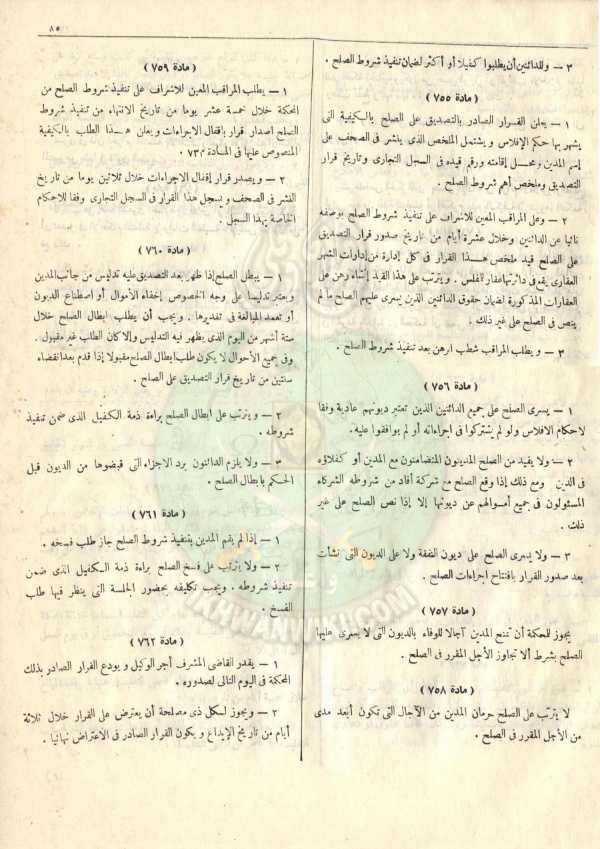 ٨٥
٣ — وللدائنين أن يطلبوا كفيلا أو أكثر لضمان تنفيذ شروط الصلح .
( مادة ٧٥٥ )
١ — يعلن القرار الصادر بالتصديق على الصلح بالكيفية التى
يشهر بها حكم الإفلاس ويشتمل الملخص الذى ينشر فى الصحف على
إسم المدين ومحل إقامته ورقم قيده فى السجل التجارى وتاريخ قرار
التصديق وملخص أهم شروط الصلح .
٢ — وعلى المراقب المعين للاشراف على تنفيذ شروط الصلح بوصفه
نائبا عن الدائنين وخلال عشرة أيام من تاريخ صدور قرار التصديق
على الصلح قيد ملخص هـذا القرار فى كل إدارة من إدارات الشهر
العقارى يقع فى دائرتها عقار للمفلس . ويترتب على هذا القيد إنشاء رهن على
العقارات المذكورة لضمان حقوق الدائنين الذين يسرى عليهم الصلح ما لم
ينص فى الصلح على غير ذلك .
٣ — ويطلب المراقب شطب الرهن بعد تنفيذ شروط الصلح .
( مادة ٧٥٦ )
١ — يسرى الصلح على جميع الدائنين الذين تعتبر ديونهم عادية وفقا
لاحكام الافلاس ولو لم يشتركوا فى اجراءاته أو لم يوافقوا عليه .
٢ — ولا يفيد من الصلح المدينون المتضامنون مع المدين أو كفلاؤه
فى الدين ومع ذلك إذا وقع الصلح مع شركة أفاد من شروطه الشركاء
المسئولون فى جميع أموالهم عن ديونها إلا إذا نص الصلح على غير
ذلك .
٣ — ولا يسرى الصلح على ديون النفقة ولا على الديون التى نشأت
بعد صدور القرار بافتتاح اجراءات الصلح .
( مادة ٧٥٧ )
يجوز للمحكمة أن تمنح المدين آجالا للوفاء بالديون التى لا يسرى عليها
الصلح بشرط ألا تجاوز الأجل المقرر فى الصلح .
( مادة ٧٥٨ )
لا يترتب على الصلح حرمان المدين من الآجال التى تكون أبعد مدى
من الأجل المقرر فى الصلح .
( مادة ٧٥٩ )
١ — يطلب المراقب المعين للاشراف على تنفيذ شروط الصلح من
المحكمة خلال خمسة عشر يوما من تاريخ الانتهاء من تنفيذ شروط
الصلح اصدار قرار بإقفال الاجراءات ويعلن هـذا الطلب بالكيفية
المنصوص عليها فى المـادة ٧٣٤ .
٢ — ويصدر قرار إقفال الاجراءات خلال ثلاثين يوما من تاريخ
النشر فى الصحف ويسجل هذا القرار فى السجل التجارى وفقا للاحكام
الخاصة بهذا السجل .
( مادة ٧٦٠ )
١ — يبطل الصلح إذا ظهر بعد التصديق عليه تدليس من جانب المدين
ويعتبر تدليسا على وجه الخصوص إخفاء الأموال أو اصطناع الديون
أو تعمد المبالغة فى تقديرها . ويجب أن يطلب ابطال الصلح خلال
ستة أشهر من اليوم الذى يظهر فيه التدليس وإلا كان الطلب غير مقبول .
وفى جميع الأحوال لا يكون طلب ابطال الصلح مقبولا إذا قدم بعد انقضاء
سنتين من تاريخ قرار التصديق على الصلح .
٢ — ويترتب على ابطال الصلح براءة ذمة الكفيل الذى ضمن تنفيذ
شروطه .
٣ — ولا يلزم الدائنون برد الاجزاء التى قبضوها من الديون قبل
الحكم بابطال الصلح .
( مادة ٧٦١ )
١ — إذا لم يقم المدين بتنفيذ شروط الصلح جاز طلب فسخه .
٢ — ولا يترتب على فسخ الصلح براءة ذمة الكفيل الذى ضمن
تنفيذ شروطه . ويجب تكليفه بحضور الجلسة التى ينظر فيها طلب
الفسخ .
( مادة ٧٦٢ )
١ — يقدر القاضى المشرف أجر الوكيل ويودع القرار الصادر بذلك
المحكمة فى اليوم التالى لصدوره .
٢ — ويجوز لكل ذى مصلحة أن يعترض على القرار خلال ثلاثة
أيام من تاريخ الإيداع ويكون القرار الصادر فى الاعتراض نهائيا .
IKHWANWIKI.COM